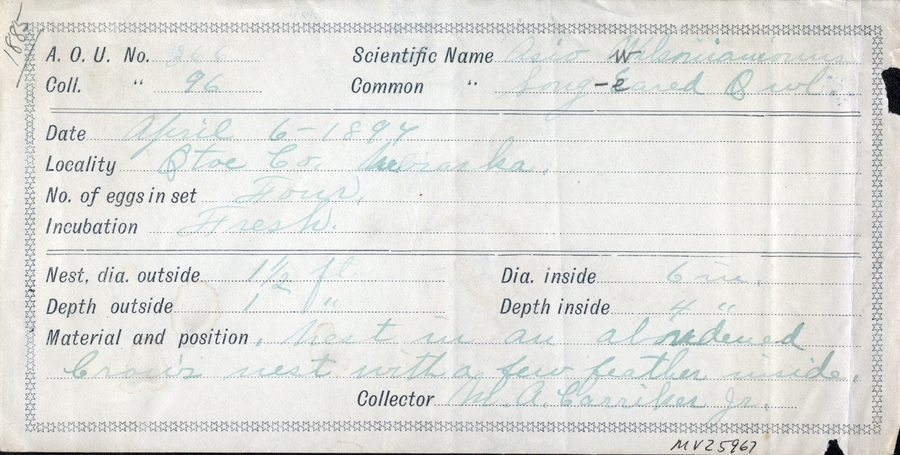 1885
A. O. U. No. 366 Scientific Name Asio Wilsonianus
Coll. " 96 Common " Long-eared Owl.
Date April 6-1897
Locality Otoe Co. Nebraska.
No. of eggs in set Four.
Incubation Fresh.
Nest, dia. outside 1 1/2 ft Dia. inside 6 in.
Depth outside 1 " Depth inside 4 "
Material and position. Nest in an abondened
Crow's nest with a few feather inside.
Collector M. A. Carriker Jr.
MVZ 5967